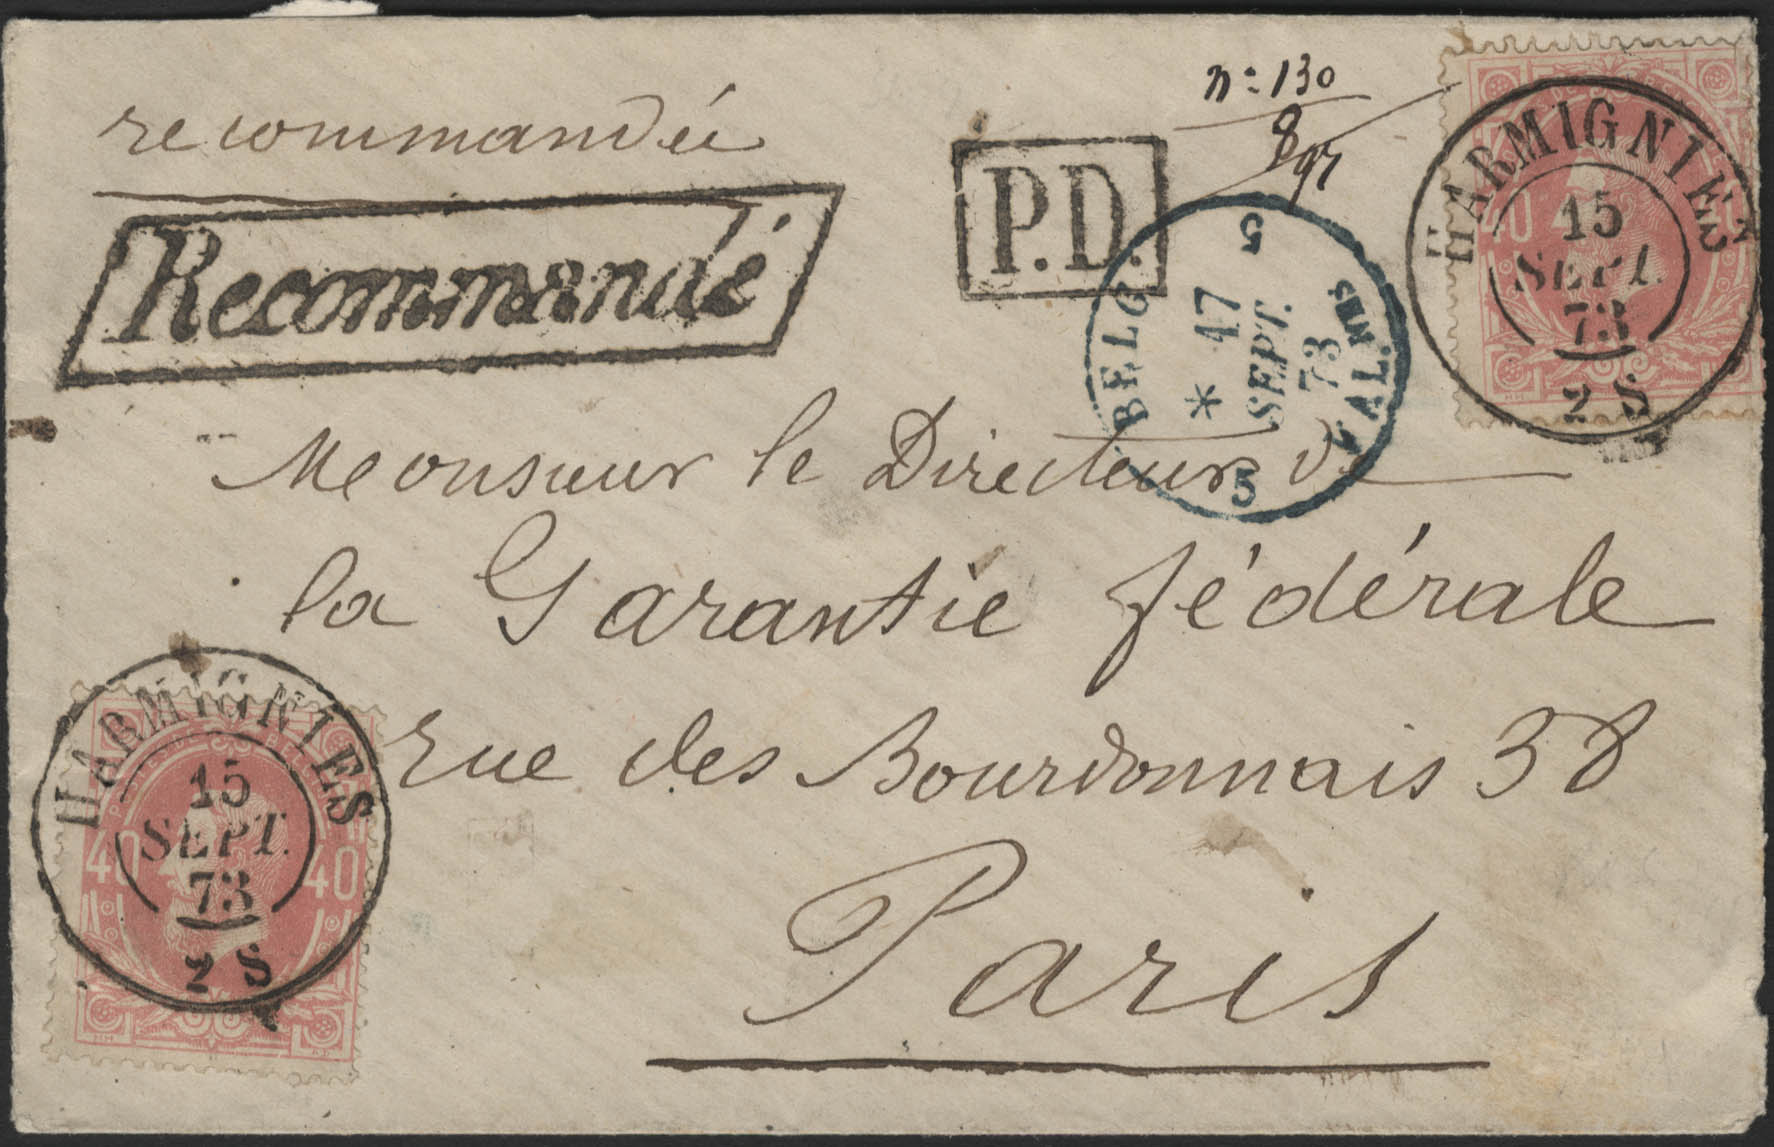 recommandée
Recommandé
P.D.
n° 130
8 gr
HARMIGNIES
15
SEPT.
73
2 S
40
BELG.
5
17
SEPT.
73
VAL.NES
5
Monsieur le Directeur de
la Garantie fédérale
rue des Bourdonnais 38
Paris
HARMIGNIES
15
SEPT.
73
2 S
40 40